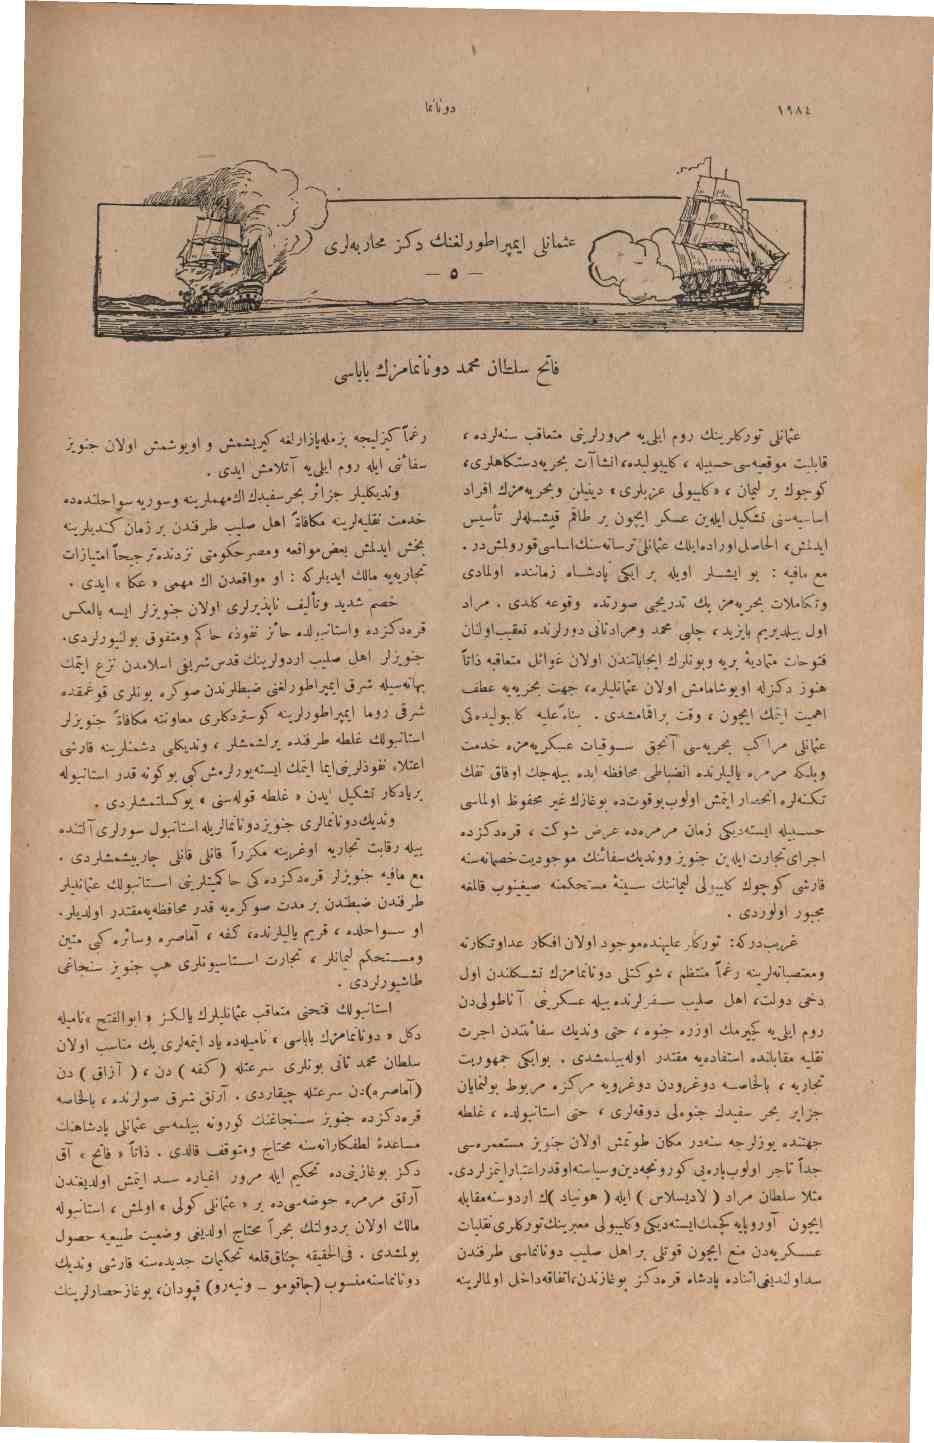 ١٩٨٤
دونانما
عثمانلی ایمپراطورلغنك دكز محاربه‌لری
— ٥ —
فاتح سلطان محمد دونانمامزك باباسی
عثمانلی توركلرینك روم ایلی‌یه مرورلرینی متعاقب سنه‌لرده ،
قابلیت موقعیه‌سی حسبیله ، كلیبولیده، انشاآت بحریه دستكاهلری،
كوچوك بر لیمان ، «كلیبولی عزبلری» دینیلن وبحریه‌مزك افراد
اساسیه‌سنی تشكیل ایله‌ین عسكر ایچون بر طاقم قیشله‌لر تأسیس
ایدلمش، الحاصل اوراده ایلك عثمانلی ترسانه‌سنك اساسی قورولمش‌در .
مع مافیه : بو ایشلر اویله بر ایكی پادشاه زماننده اولمادی
وتكاملات بحریه‌مز پك تدریجی صورتده وقوعه كلدی . مراد
اول ییلدیریم بایزید ، چلبی محمد ومراد ثانی دورلرنده تعقیب اولنان
فتوحات متمادیهٔ بریه وبونلرك ایجاباتندن اولان غوائل متعاقبه ذاتاً
هنوز دكزله اویوشامامش اولان عثمانلیلره، جهت بحریه‌یه عطف
اهمیت ایتمك ایچون ، وقت براقمامشدی . بناءً علیه كلیبولیده‌كی
عثمانلی مراكب بحریه‌سی آنجق سوقیات عسكریه‌مزه خدمت
ویلكه مرمره یالیلرنده انضباطی محافظه ایده بیله‌جك اوفاق تفك
تكنه‌لره انحصار ایتمش اولوب بوقوت‌ده بوغازك غیر محفوظ اولماسی
حسبیله ایسته‌دیكی زمان مرمره‌ده عرض شوكت ، قره‌دكزده
اجرای تجارت ایله‌ین جنویز ووندیك سفائنك موجودیت خصمانه‌سنه
قارشی كوچوك كلیبولی لیماننك سینهٔ مستحكمنه صیغینوب قالمغه
مجبور اولوردی .
غریب‌دركه : توركلر علیهنده موجود اولان افكار عداوتكارانه
ومتعصبانه‌لرینه رغماً منتظم ، شوكتلی دونانمامزك تشكلندن اول
دخی دولت، اهل صلیب سفرلرنده بیله عسكرینی آناطولی‌دن
روم ایلی‌یه كچیرمك اوزره جنوه ، حتی وندیك سفائنندن اجرت
نقلیه مقابلنده استفاده‌یه مقتدر اوله‌بیلمشدی . بوایكی جمهوریت
تجاریه ، بالخاصه دوغرودن دوغرویه مركزه مربوط بولنمایان
جزایر بحر سفیدك جنوه‌لی دوقه‌لری ، حتی استانبولده ، غلطه
جهتنده یوزلرجه سنه‌در مكان طوتمش اولان جنویز مستعمره‌سی
جداً تاجر اولوب پاره‌یی كورونجه دین وسیاسته اوقدر اعتبار ایتمزلردی.
مثلا سلطان مراد ( لادیسلاس ) ایله ( هونیاد )ك اردوسنه مقابله
ایچون آوروپایه كچمك ایسته‌دیكی وكلیبولی معبرینك توركلری نقلیات
عسكریه‌دن منع ایچون قوتلی بر اهل صلیب دونانماسی طرفندن
سد اولندیغی اثناده پادشاه قره‌دكز بوغازندن، اتفاقه داخل اولمالرینه
رغماً كیزلیجه بزمله پازارلغه كیریشمش و اویوشمش اولان جنویز
سفائنی ایله روم ایلی‌یه آتلامش ایدی .
وندیكلیلر جزائر بحرسفیدك اك مهملرینه وسوریه سواحلنده‌ده
خدمت نقلیه‌لرینه مكافاةً اهل صلیب طرفندن بر زمان كندیلرینه
بخش ایدلمش بعض مواقعه ومصر حكومتی نزدنده ترجیحاً امتیازات
تجاریه‌یه مالك ایدیلركه : او مواقعدن اك مهمی « عكا » ایدی .
خصم شدید وتألیف ناپذیرلری اولان جنویزلر ایسه بالعكس
قره‌دكزده واستانبولده حائز نفوذ، حاكم ومتفوق بولنیورلردی.
جنویزلر اهل صلیب اردولرینك قدس شریفی اسلامدن نزع ایتمك
بهانه‌سیله شرق ایمپراطورلغنی ضبطلرندن صوكره بونلری قوغمقده
شرقی روما ایمپراطورلرینه كوستردكلری معاونته مكافاةً جنویزلر
استانبولك غلطه طرفنده یرلشمشلر ، وندیكلی دشمنلرینه قارشی
اعتلاء نفوذلرینی ایما ایتمك ایسته‌یورلرمش كبی بوكونه قدر استانبوله
بریادكار تشكیل ایدن « غلطه قوله‌سنی » یوكسلتمشلردی .
وندیك دونانمالری جنویز دونانمالریله استانبول سورلری آلتنده
بیله رقابت تجاریه اوغرینه مكرراً قانلی قانلی چارپیشمشلردی .
مع مافیه جنویزلر قره‌دكزده‌كی حاكمیتلرینی استانبولك عثمانلیلر
طرفندن ضبطندن بر مدت صوكره‌یه قدر محافظه‌یه مقتدر اولدیلر.
او سواحلده ، قریم یالیلرنده، كفه ، آماصره وسائره كبی متین
ومستحكم لیمانلر ، تجارت استاسیونلری هپ جنویز سنجاغی
طاشیورلردی .
استانبولك فتحنی متعاقب عثمانلیلرك یالكز « ابوالفتح » نامیله
دكل « دونانمامزك باباسی » نامیله‌ده یاد ایتمه‌لری پك مناسب اولان
سلطان محمد ثانی بونلری سرعتله ( كفه ) دن ، ( آزاق ) دن
(آماصره)دن سرعتله چیقاردی . آرتق شرق صولرنده ، بالخاصه
قره‌دكزده جنویز سنجاغنك كورونه بیلمه‌سی عثمانلی پادشاهنك
مساعدهٔ لطفكارانه‌سنه محتاج ومتوقف قالدی . ذاتاً « فاتح » آق
دكز بوغازینی‌ده تحكیم ایله مرور اغیاره سد ایتمش اولدیغندن
آرتق مرمره حوضه‌سی‌ده بر « عثمانلی كولی » اولمش ، استانبوله
مالك اولان بردولتك بحراً محتاج اولدیغی وضعیت طبیعیه حصول
بولمشدی . فی‌الحقیقه چناق‌قلعه تحكیمات جدیده‌سنه قارشی وندیك
دونانماسنه منسوب (جاقومو ـ ونیه‌رو) قپودان، بوغازحصارلرینك